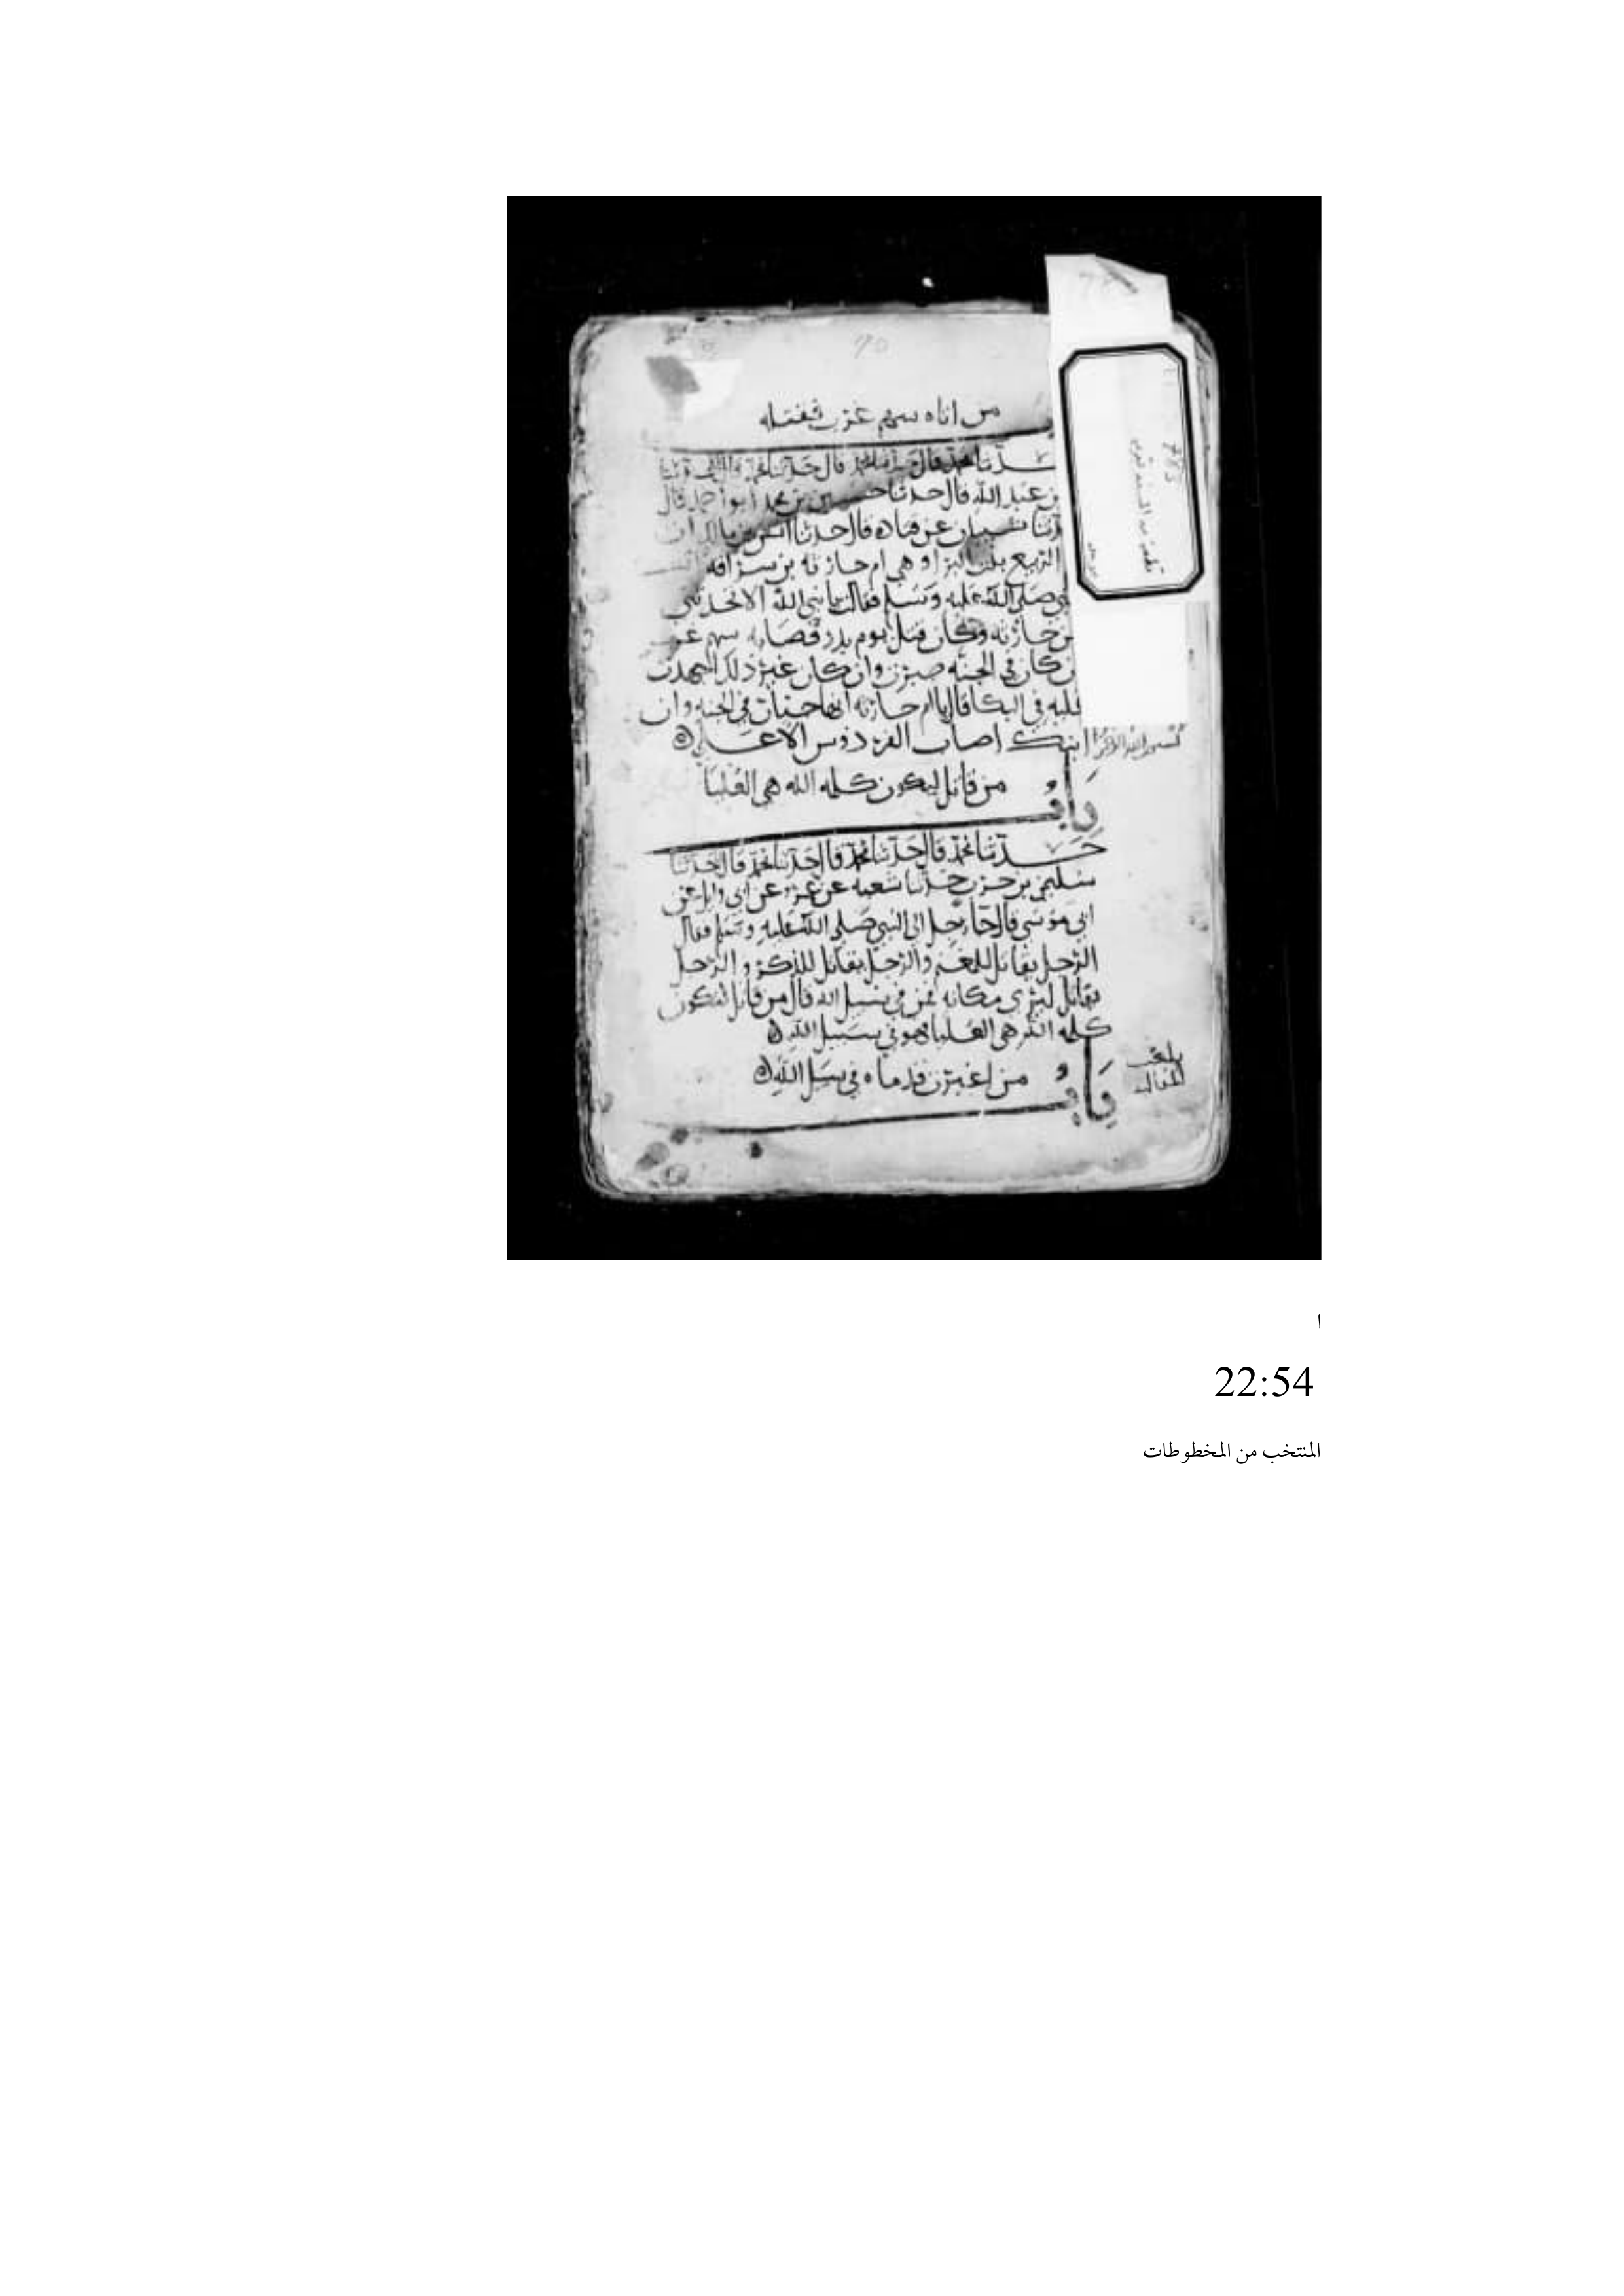 من اتاه سهم غرب فقتله
حدثنا محمد قال حدثنا محمد قال حدثنا محمد
بن عبد الله قال حدثنا حسين بن محمد ابو احمد قال
شيبان عن قتاده قال حدثنا انس بن مالك ان
الربيع بنت البرا وهي ام حارثه بن سراقه اتت
صلى الله عليه وسلم فقالت يا نبي الله الا تحدثني
عن حارثه وكان قتل يوم بدر فاصابه سهم غرب
كان في الجنه صبرت وان كان غير ذلك اجتهدت
عليه في البكا قال يا ام حارثه انها جنات في الجنه وان
ابنك اصاب الفردوس الاعلى
باب من قاتل ليكون كلمه الله هي العليا
حدثنا محمد قال حدثنا محمد قال حدثنا محمد قال حدثنا
سليمن بن حرب حدثنا شعبه عن عمرو عن ابي وايل عن
ابي موسى قال جا رجل الى النبي صلى الله عليه وسلم فقال
الرجل يقاتل للمغنم والرجل يقاتل للذكر والرجل
يقاتل ليرى مكانه فمن في سبيل الله قال من قاتل لتكون
كلمه الله هي العليا فهو في سبيل الله
باب من اغبرت قدماه في سبيل الله
بلغت
المقابله
ا
22:54
المنتخب من المخطوطات